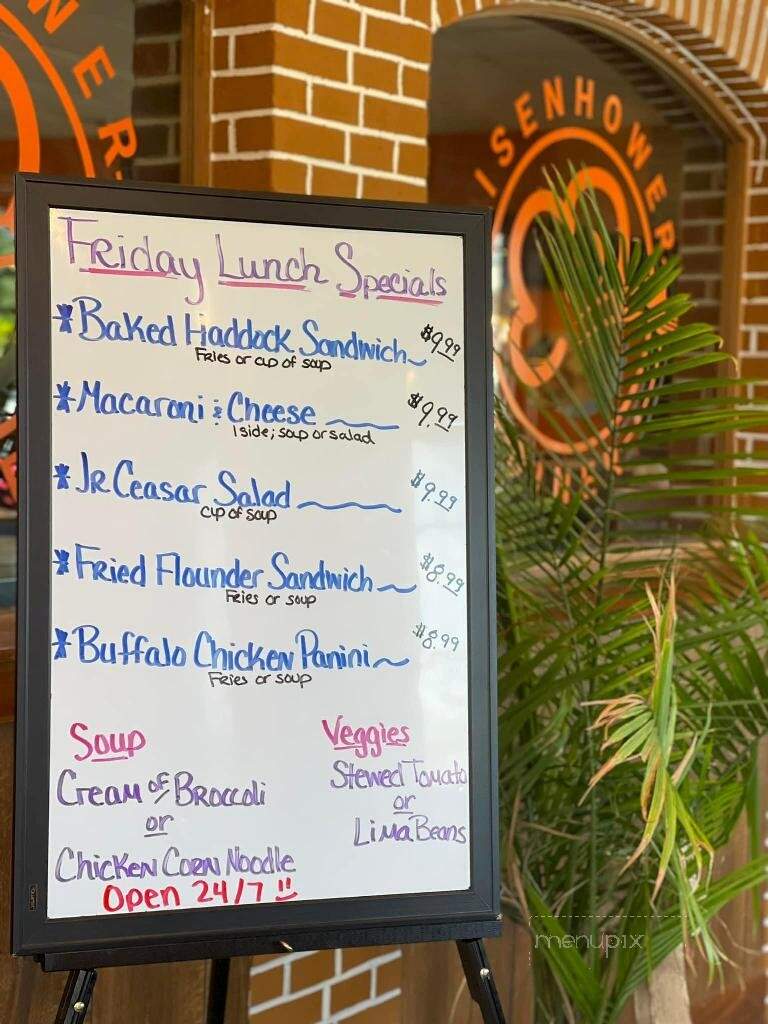 WER
ISENHOWER
Friday Lunch Specials
*Baked Haddock Sandwich $9.99
Fries or cup of soup
*Macaroni & Cheese $9.99
1 side; soup or salad
*Jr Ceasar Salad $9.99
cup of soup
*Fried Flounder Sandwich $8.99
Fries or soup
*Buffalo Chicken Panini $8.99
Fries or soup
Soup
Cream of Broccoli
or
Chicken Corn Noodle
Veggies
Stewed Tomato
or
Lima Beans
Open 24/7
menupix